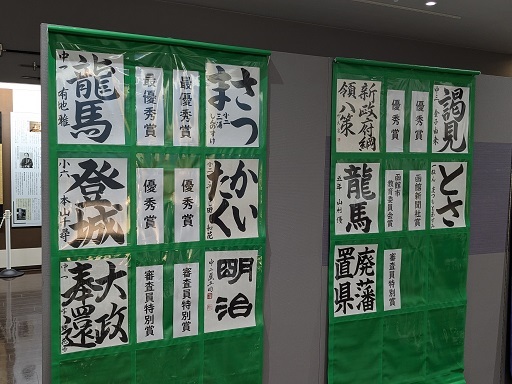 さつま
最優秀賞
最優秀賞
龍馬
中一
かいたく
優秀賞
優秀賞
登城
小六 本山千尋
明治
審査員特別賞
審査員特別賞
大政奉還
謁見
優秀賞
優秀賞
新政府綱領八策
とさ
函館新聞社賞
函館市教育委員会賞
龍馬
五年
審査員特別賞
廃藩置県